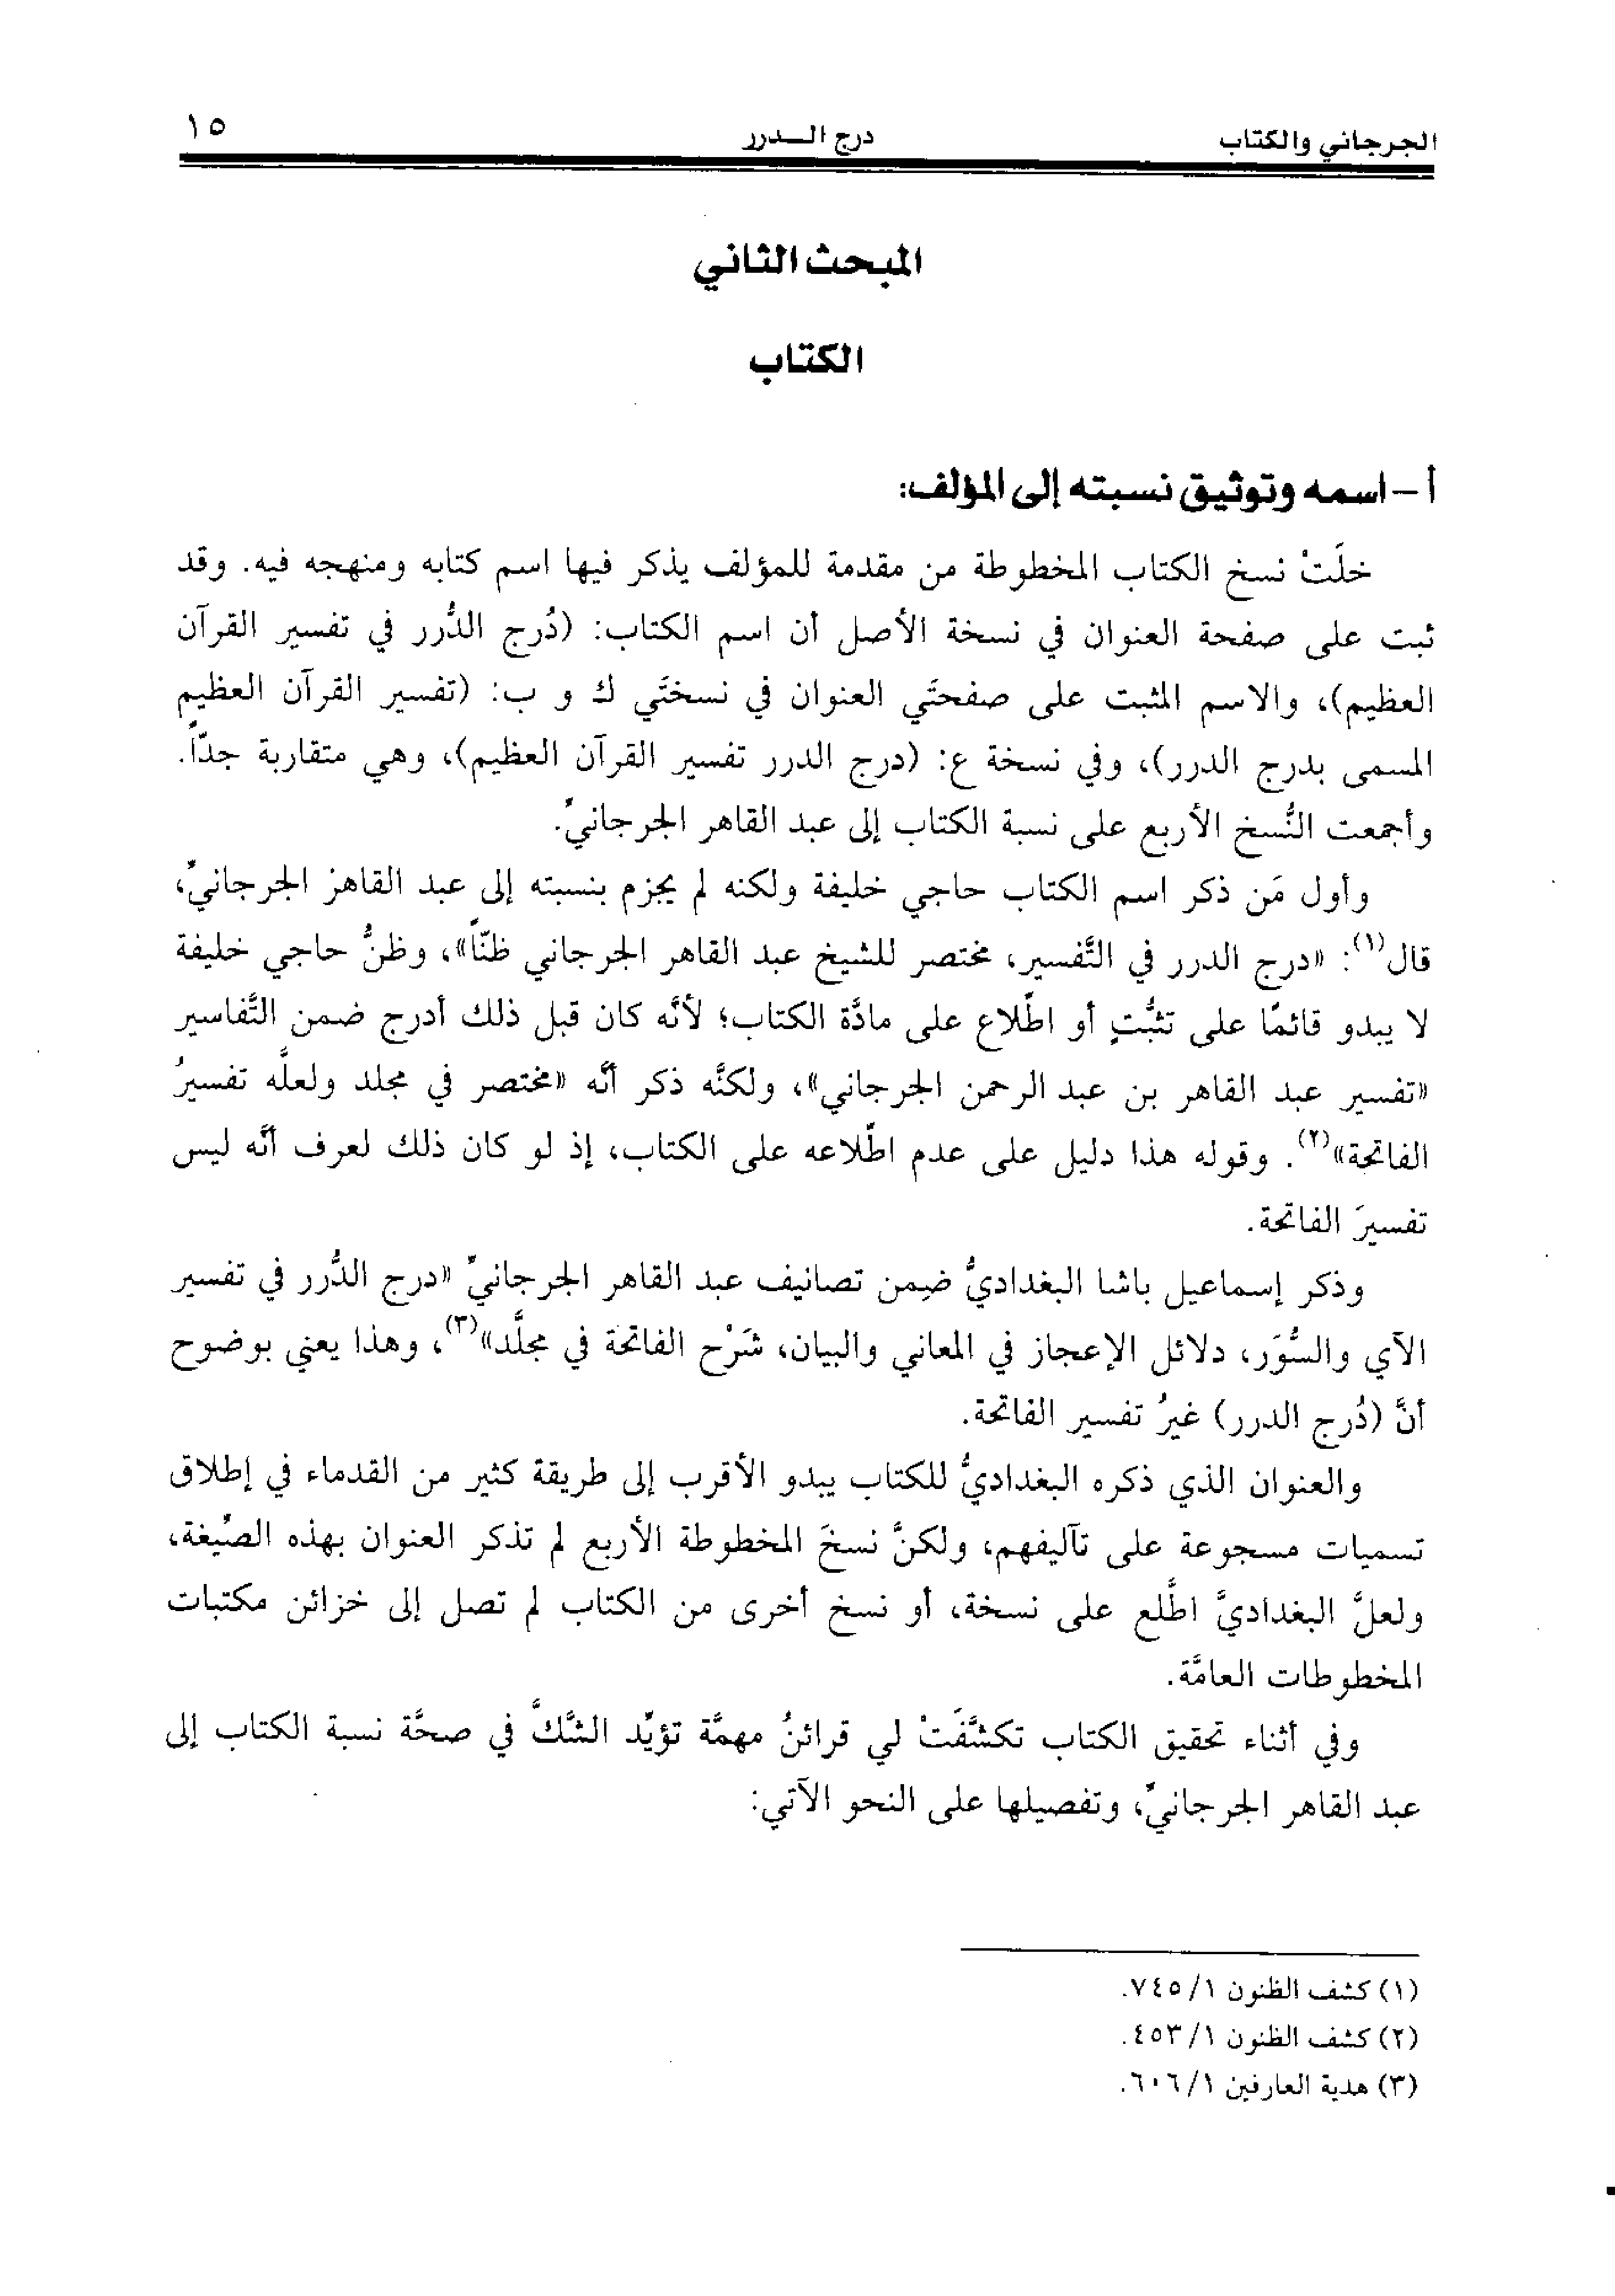 الجرجاني والكتاب درج الـــدرر ١٥
المبحث الثاني
الكتاب
أ – اسمه وتوثيق نسبته إلى المؤلف:
خلَتْ نسخ الكتاب المخطوطة من مقدمة للمؤلف يذكر فيها اسم كتابه ومنهجه فيه. وقد
ثبت على صفحة العنوان في نسخة الأصل أن اسم الكتاب: (دُرج الدُّرر في تفسير القرآن
العظيم)، والاسم المثبت على صفحتَي العنوان في نسختَي ك و ب: (تفسير القرآن العظيم
المسمى بدرج الدرر)، وفي نسخة ع: (درج الدرر تفسير القرآن العظيم)، وهي متقاربة جدّاً.
وأجمعت النُّسخ الأربع على نسبة الكتاب إلى عبد القاهر الجرجانيّ.
وأول مَن ذكر اسم الكتاب حاجي خليفة ولكنه لم يجزم بنسبته إلى عبد القاهر الجرجانيّ،
قال(١): «درج الدرر في التَّفسير، مختصر للشيخ عبد القاهر الجرجاني ظنّاً»، وظنُّ حاجي خليفة
لا يبدو قائمًا على تثبُّتٍ أو اطّلاع على مادَّة الكتاب؛ لأنَّه كان قبل ذلك أدرج ضمن التَّفاسير
«تفسير عبد القاهر بن عبد الرحمن الجرجاني»، ولكنَّه ذكر أنَّه «مختصر في مجلد ولعلَّه تفسيرُ
الفاتحة»(٢). وقوله هذا دليل على عدم اطّلاعه على الكتاب، إذ لو كان ذلك لعرف أنَّه ليس
تفسيرَ الفاتحة.
وذكر إسماعيل باشا البغداديُّ ضِمن تصانيف عبد القاهر الجرجانيّ «درج الدُّرر في تفسير
الآي والسُّوَر، دلائل الإعجاز في المعاني والبيان، شَرْح الفاتحة في مجلَّد»(٣)، وهذا يعني بوضوح
أنَّ (دُرج الدرر) غيرُ تفسير الفاتحة.
والعنوان الذي ذكره البغداديُّ للكتاب يبدو الأقرب إلى طريقة كثير من القدماء في إطلاق
تسميات مسجوعة على تآليفهم، ولكنَّ نسخَ المخطوطة الأربع لم تذكر العنوان بهذه الصِّيغة،
ولعلَّ البغداديَّ اطَّلع على نسخة، أو نسخ أخرى من الكتاب لم تصل إلى خزائن مكتبات
المخطوطات العامَّة.
وفي أثناء تحقيق الكتاب تكشَّفَتْ لي قرائنُ مهمَّة تؤيِّد الشَّكَّ في صحَّة نسبة الكتاب إلى
عبد القاهر الجرجانيّ، وتفصيلها على النحو الآتي:
(١) كشف الظنون ١/ ٧٤٥.
(٢) كشف الظنون ١/ ٤٥٣.
(٣) هدية العارفين ١/ ٦٠٦.